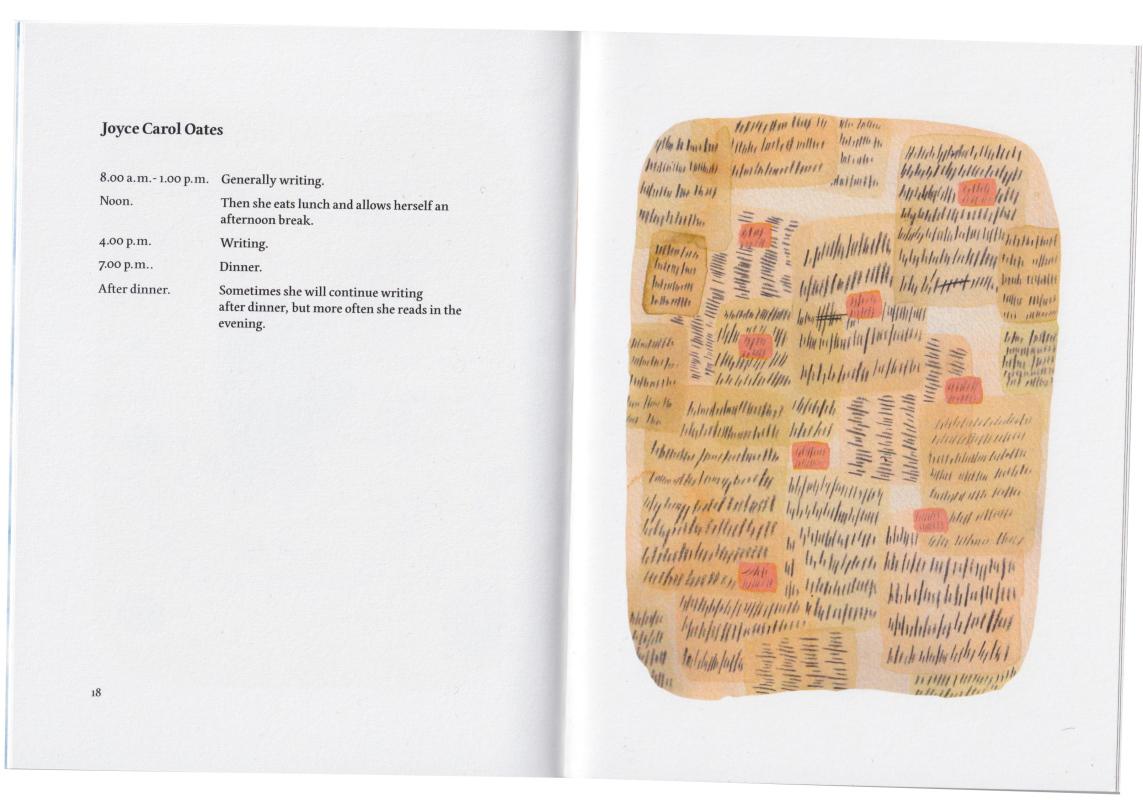 Joyce Carol Oates
8.00 a.m.- 1.00 p.m. Generally writing.
Noon. Then she eats lunch and allows herself an
afternoon break.
4.00 p.m. Writing.
7.00 p.m.. Dinner.
After dinner. Sometimes she will continue writing
after dinner, but more often she reads in the
evening.
18